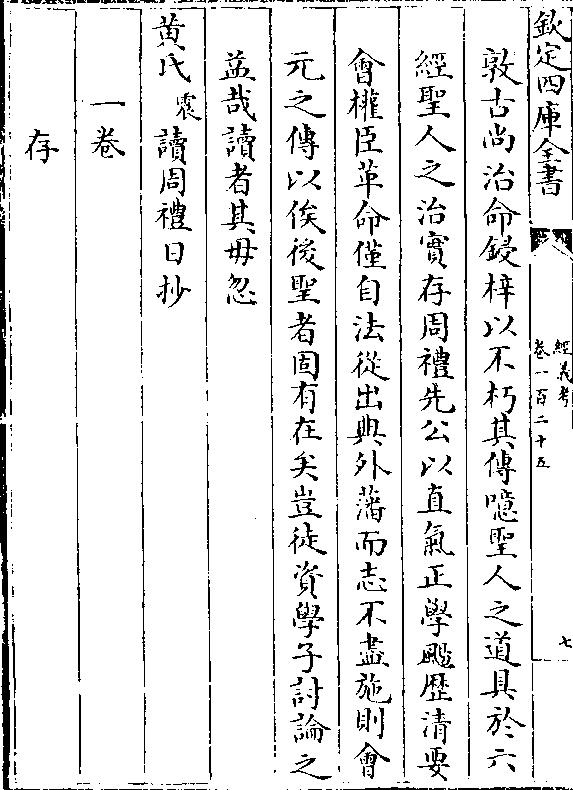 欽定四庫全書
經義考
卷一百二十五
七
敦古尚治命鋟梓以不朽其傳噫聖人之道具於六
經聖人之治實存周禮先公以直氣正學颺歴清要
會權臣革命僅自法從出典外藩而志不盡施則會
元之傳以俟後聖者固有在矣豈徒資學子討論之
益哉讀者其毋忽
黄氏震讀周禮日抄
一卷
存